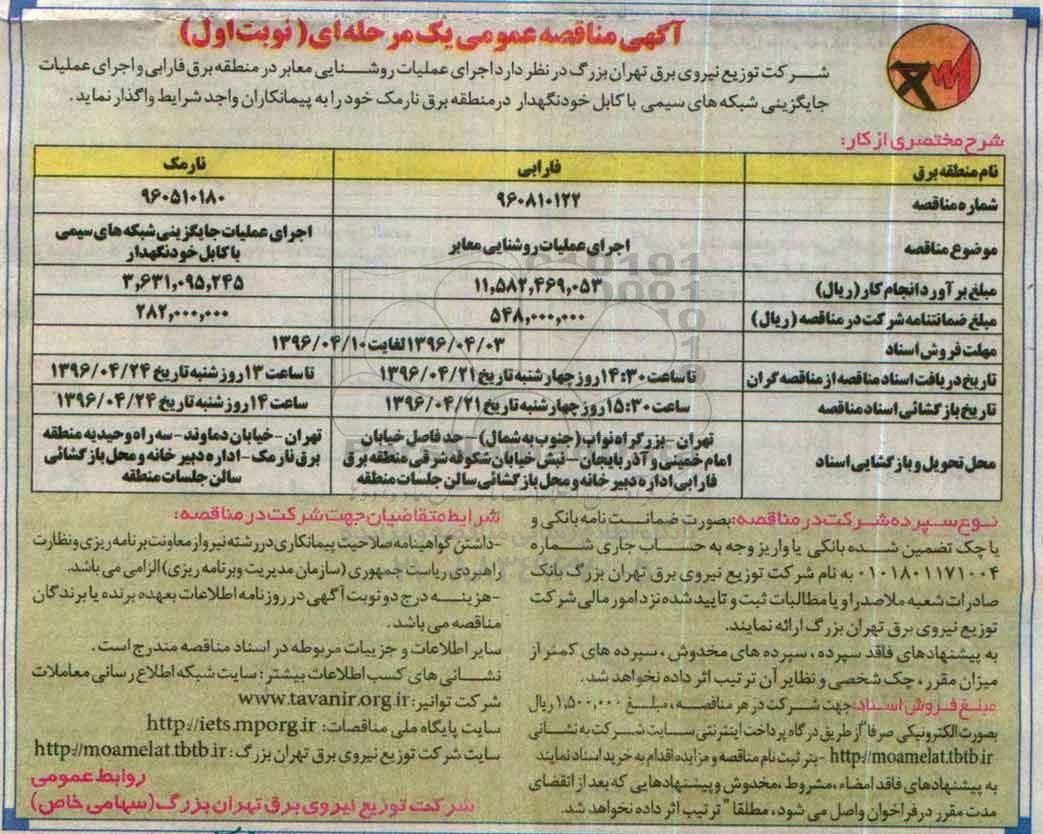 آگهی مناقصه عمومی یک مرحله‌ای (نوبت اول)
شرکت توزیع نیروی برق تهران بزرگ در نظر دارد اجرای عملیات روشنایی معابر در منطقه برق فارابی و اجرای عملیات
جایگزینی شبکه های سیمی با کابل خودنگهدار در منطقه برق نارمک خود را به پیمانکاران واجد شرایط واگذار نماید.
شرح مختصری از کار:
نام منطقه برق فارابی نارمک
شماره مناقصه ۹۶۰۸۱۰۱۲۲ ۹۶۰۵۱۰۱۸۰
موضوع مناقصه اجرای عملیات روشنایی معابر اجرای عملیات جایگزینی شبکه های سیمی
با کابل خودنگهدار
مبلغ برآورد انجام کار (ریال) ۱۱,۵۸۲,۴۶۹,۰۵۳ ۳,۶۳۱,۰۹۵,۲۴۵
مبلغ ضمانتنامه شرکت در مناقصه (ریال) ۵۴۸,۰۰۰,۰۰۰ ۲۸۲,۰۰۰,۰۰۰
مهلت فروش اسناد ۱۳۹۶/۰۴/۰۳ لغایت ۱۳۹۶/۰۴/۱۰
تاریخ دریافت اسناد مناقصه از مناقصه گران تا ساعت ۱۴:۳۰ روز چهارشنبه تاریخ ۱۳۹۶/۰۴/۲۱ تا ساعت ۱۳ روز شنبه تاریخ ۱۳۹۶/۰۴/۲۴
تاریخ بازگشائی اسناد مناقصه ساعت ۱۵:۳۰ روز چهارشنبه تاریخ ۱۳۹۶/۰۴/۲۱ ساعت ۱۴ روز شنبه تاریخ ۱۳۹۶/۰۴/۲۴
محل تحویل و بازگشایی اسناد
تهران - بزرگراه نواب (جنوب به شمال) - حد فاصل خیابان
امام خمینی و آذربایجان - نبش خیابان شکوفه شرقی منطقه برق
فارابی اداره دبیرخانه و محل بازگشائی سالن جلسات منطقه
تهران - خیابان دماوند - سه راه وحیدیه منطقه
برق نارمک - اداره دبیرخانه و محل بازگشائی
سالن جلسات منطقه
نوع سپرده شرکت در مناقصه: بصورت ضمانت نامه بانکی و
یا چک تضمین شده بانکی یا واریز وجه به حساب جاری شماره
۰۱۰۱۸۰۱۱۷۱۰۰۴ به نام شرکت توزیع نیروی برق تهران بزرگ بانک
صادرات شعبه ملاصدرا و یا مطالبات ثبت و تایید شده نزد امور مالی شرکت
توزیع نیروی برق تهران بزرگ ارائه نمایند.
به پیشنهادهای فاقد سپرده، سپرده های مخدوش، سپرده های کمتر از
میزان مقرر، چک شخصی و نظایر آن ترتیب اثر داده نخواهد شد.
مبلغ فروش اسناد: جهت شرکت در هر مناقصه، مبلغ ۱,۵۰۰,۰۰۰ ریال
بصورت الکترونیکی صرفاً از طریق درگاه پرداخت اینترنتی سایت شرکت به نشانی
http://moamelat.tbtb.ir - بنر ثبت نام مناقصه و مزایده اقدام به خرید اسناد نمایند
به پیشنهادهای فاقد امضاء، مشروط، مخدوش و پیشنهادهایی که بعد از انقضای
مدت مقرر در فراخوان واصل می شود، مطلقا" ترتیب اثر داده نخواهد شد.
شرایط متقاضیان جهت شرکت در مناقصه:
-داشتن گواهینامه صلاحیت پیمانکاری در رشته نیرو از معاونت برنامه ریزی و نظارت
راهبردی ریاست جمهوری (سازمان مدیریت وبرنامه ریزی) الزامی می باشد.
-هزینه درج دو نوبت آگهی در روزنامه اطلاعات بعهده برنده یا برندگان
مناقصه می باشد.
سایر اطلاعات و جزییات مربوطه در اسناد مناقصه مندرج است.
نشانی های کسب اطلاعات بیشتر: سایت شبکه اطلاع رسانی معاملات
شرکت توانیر: www.tavanir.org.ir
سایت پایگاه ملی مناقصات: http://iets.mporg.ir
سایت شرکت توزیع نیروی برق تهران بزرگ: http://moamelat.tbtb.ir
روابط عمومی
شرکت توزیع نیروی برق تهران بزرگ (سهامی خاص)